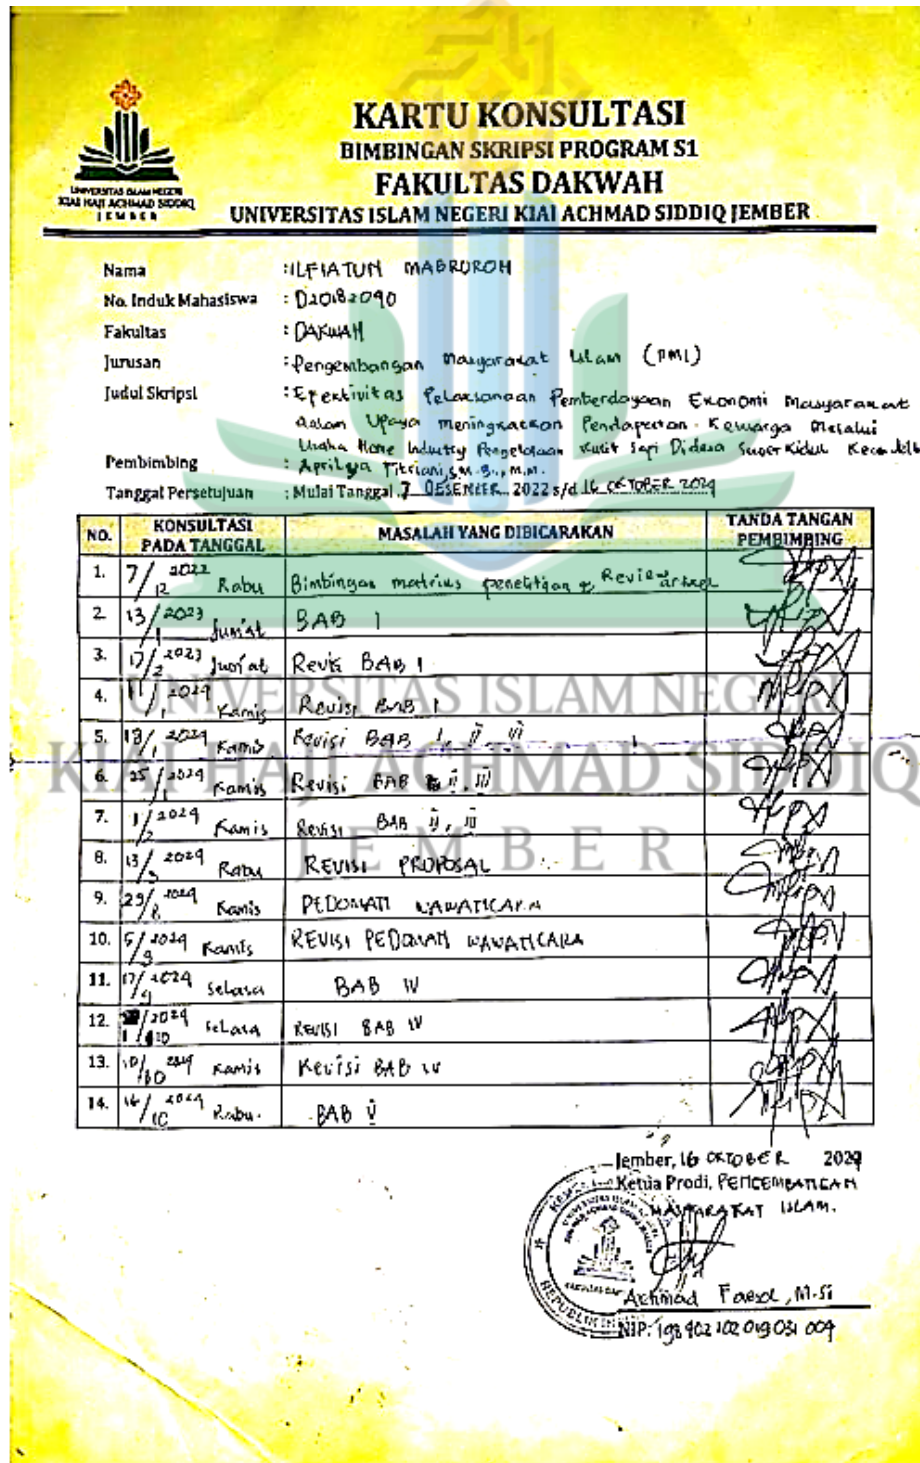 KARTU KONSULTASI
BIMBINGAN SKRIPSI PROGRAM S1
FAKULTAS DAKWAH
UNIVERSITAS ISLAM NEGERI KIAI ACHMAD SIDDIQ JEMBER
UNIVERSITAS ISLAM NEGERI
KIAI HAJI ACHMAD SIDDIQ
JEMBER
Nama : ILFIATUN MABRUROH
No. Induk Mahasiswa : D20182090
Fakultas : DAKWAH
Jurusan : Pengembangan Masyarakat Islam (PMI)
Judul Skripsi : Efektivitas Pelaksanaan Pemberdayaan Ekonomi Masyarakat
dalam Upaya meningkatkan Pendapatan Keluarga Melalui
Usaha Home Industry Pengelolaan Kulit Sapi Didesa Kidul
Pembimbing : Aprilya Fitriani, S.M.B., M.M.
Tanggal Persetujuan : Mulai Tanggal 7 DESEMBER 2022 s/d 16 OKTOBER 2024
NO. KONSULTASI PADA TANGGAL MASALAH YANG DIBICARAKAN TANDA TANGAN PEMBIMBING
1. 7/12 2022 Rabu Bimbingan matriks penelitian & Review artikel
2. 13/1 2023 Jum'at BAB I
3. 17/2 2023 Jum'at Revisi BAB I
4. 11/1 2024 Kamis Revisi BAB I
5. 18/1 2024 Kamis Revisi BAB I, II, III
6. 25/1 2024 Kamis Revisi BAB II, III
7. 1/2 2024 Kamis Revisi BAB II, III
8. 13/3 2024 Rabu REVISI PROPOSAL
9. 29/8 2024 Kamis PEDOMAN WAWANCARA
10. 5/9 2024 Kamis REVISI PEDOMAN WAWANCARA
11. 17/9 2024 Selasa BAB IV
12. 1/10 2024 Selasa REVISI BAB IV
13. 10/10 2024 Kamis Revisi BAB IV
14. 16/10 2024 Rabu. BAB V
UNIVERSITAS ISLAM NEGERI
KIAI HAJI ACHMAD SIDDIQ
JEMBER
Jember, 16 OKTOBER 2024
Ketua Prodi, PENGEMBANGAN
MASYARAKAT ISLAM.
Achmad Faesol, M.Si
NIP. 198402102019031004